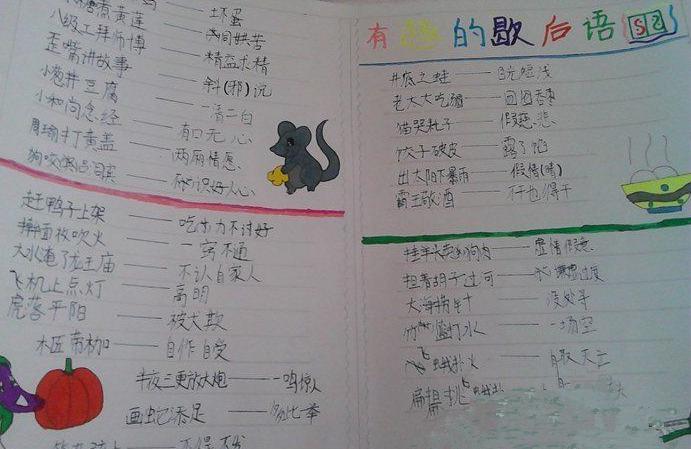 煮黄莲——同甘共苦
八级工拜师傅——精益求精
歪嘴讲故事——斜(邪)说
小葱拌豆腐——一清二白
小和尚念经——有口无心
周瑜打黄盖——两厢情愿
狗咬吕洞宾——不识好人心
赶鸭子上架——吃力不讨好
擀面杖吹火——一窍不通
大水淹了龙王庙——不认自家人
飞机上点灯——高明
虎落平阳——被犬欺
木匠带枷——自作自受
半夜三更放大炮——一鸣惊人
画蛇添足——多此一举
有趣的歇后语
井底之蛙——目光短浅
老太太吃
猫哭耗子——假慈悲
饺子破皮——露了馅
出太阳下暴雨——假情(晴)
霸王敬酒——不干也得干
挂羊头卖狗肉——虚情假意
担着胡子过河
大海捞针——没处寻
竹篮打水——一场空
飞蛾扑火——自取灭亡
扁担挑